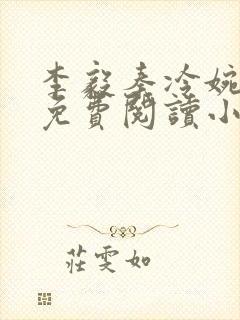 李毅秦冷婉
免費閱讀小
莊雯如